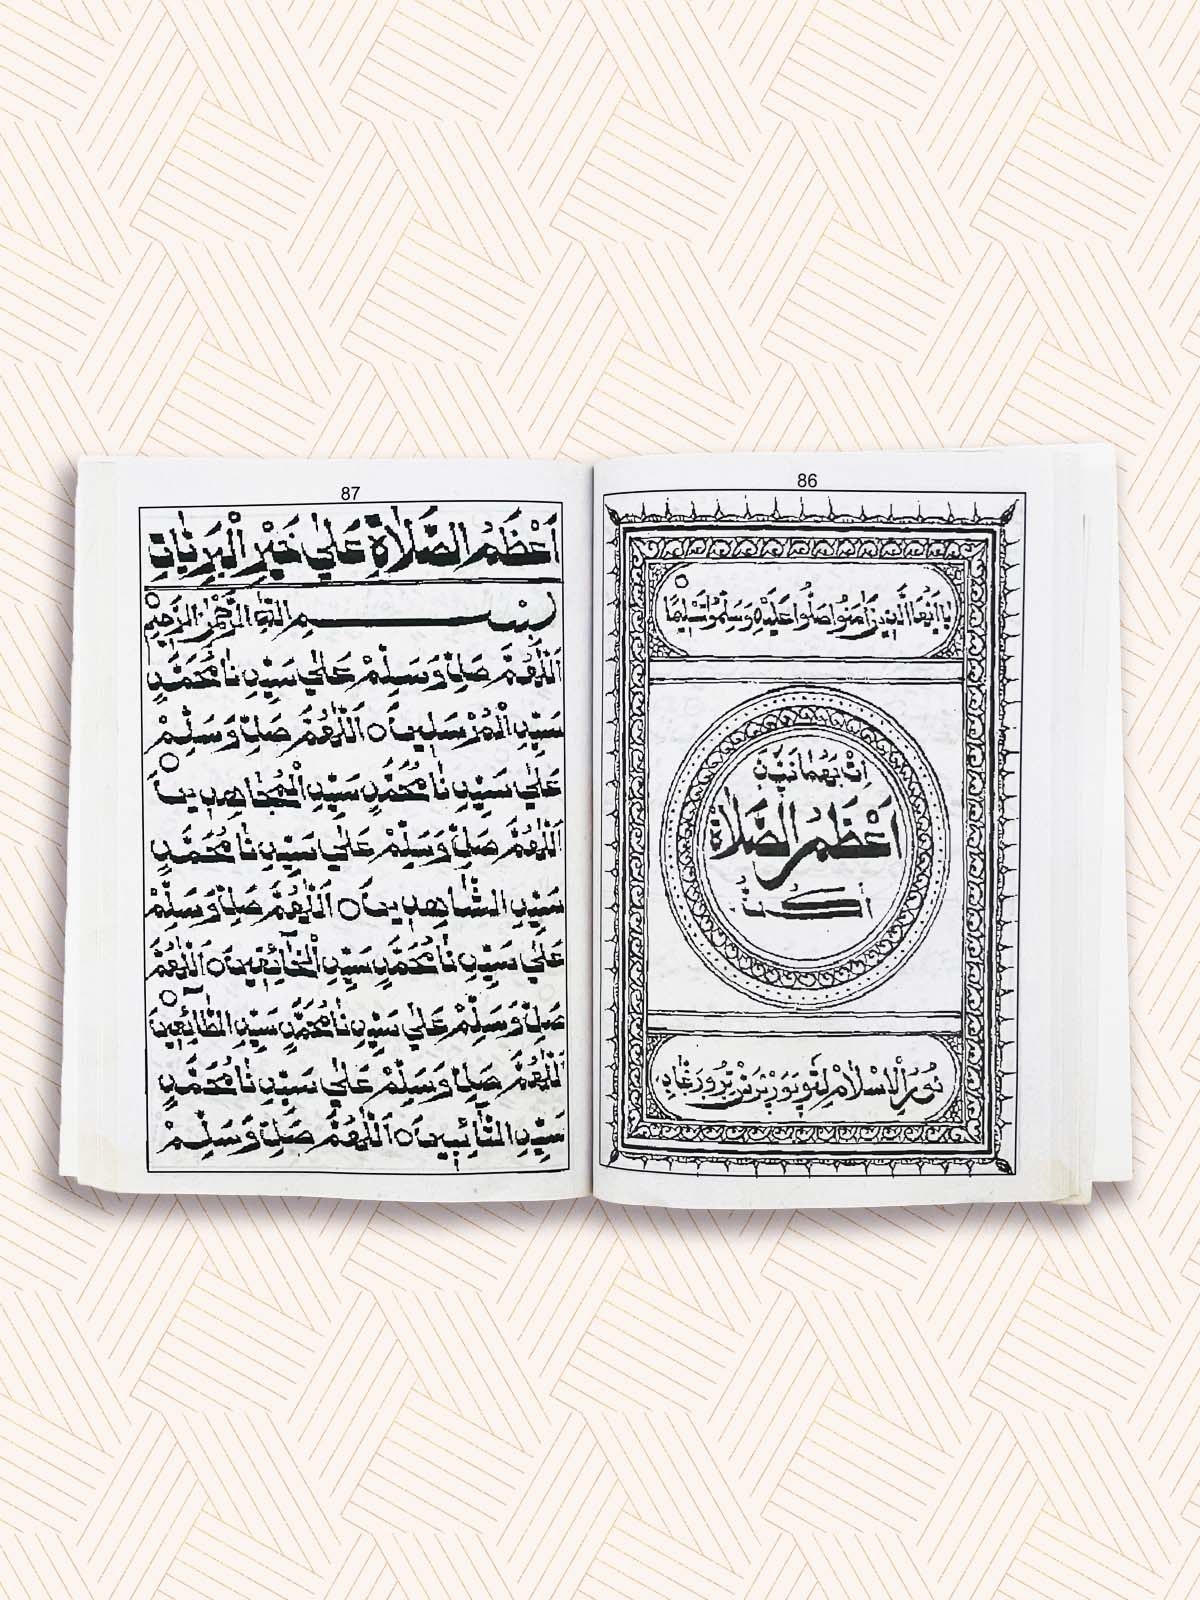 86
يَا أَيُّهَا الَّذِينَ آمَنُوا صَلُّوا عَلَيْهِ وَسَلِّمُوا تَسْلِيمًا
أَعْظَمُ الصَّلَاةْ
نُورُ الْإِسْلَامْ
87
اَعْظَمُ الصَّلَاةِ عَلَي خَيْرِ الْبَرِيَّاتِ
بِسْمِ اللّٰهِ الرَّحْمٰنِ الرَّحِيْمِ
اَللّٰهُمَّ صَلِّ وَسَلِّمْ عَلٰي سَيِّدِنَا مُحَمَّدٍ
سَيِّدِ الْمُرْسَلِينَ ۝ اَللّٰهُمَّ صَلِّ وَسَلِّمْ
عَلٰي سَيِّدِنَا مُحَمَّدٍ سَيِّدِ الْمُجَاهِدِينَ ۝
اَللّٰهُمَّ صَلِّ وَسَلِّمْ عَلٰي سَيِّدِنَا مُحَمَّدٍ
سَيِّدِ الشَّاهِدِينَ ۝ اَللّٰهُمَّ صَلِّ وَسَلِّمْ
عَلٰي سَيِّدِنَا مُحَمَّدٍ سَيِّدِ الْخَائِفِينَ ۝ اَللّٰهُمَّ
صَلِّ وَسَلِّمْ عَلٰي سَيِّدِنَا مُحَمَّدٍ سَيِّدِ الطَّائِعِينَ ۝
اَللّٰهُمَّ صَلِّ وَسَلِّمْ عَلٰي سَيِّدِنَا مُحَمَّدٍ
سَيِّدِ التَّائِبِينَ ۝ اَللّٰهُمَّ صَلِّ وَسَلِّمْ